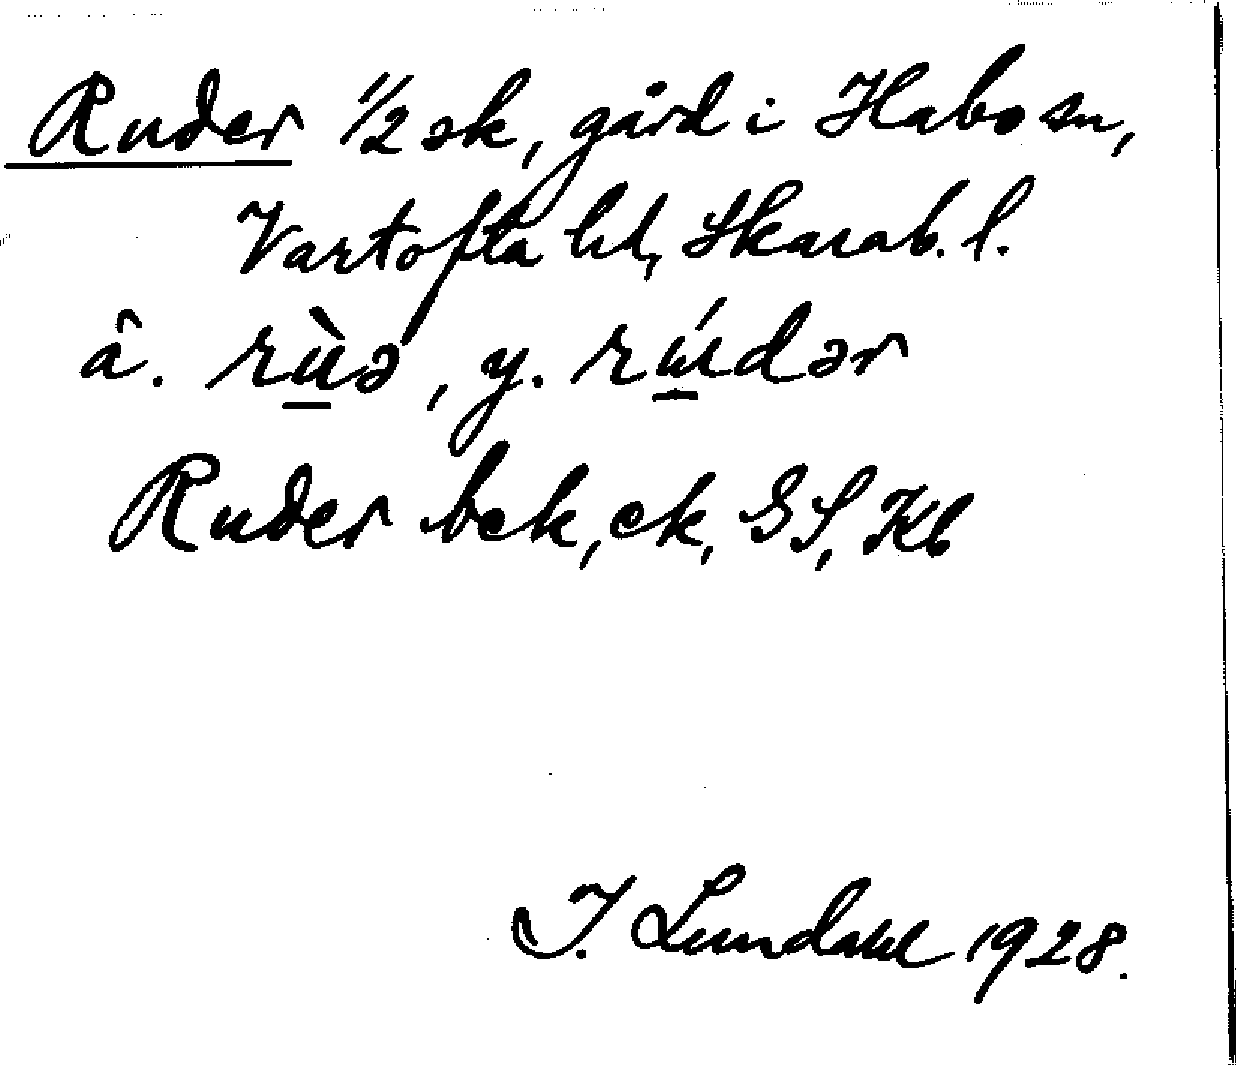 Ruder 1/2 sk, gård i Habo sn,
Vartofta hd, Skarab. l.
â. rù̠ə, y. rú̠dər
Ruder bek, ek, GS, Kb
I. Lundahl 1928.